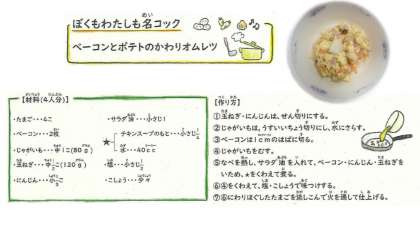 ぼくもわたしも名コック
ベーコンとポテトのかわりオムレツ
【材料(4人分)】
・たまご・・・4こ
・ベーコン・・・2枚
・じゃがいも・・・中1こ(80g)
・玉ねぎ・・・中1/2こ(120g)
・にんじん・・・小1/2こ
・サラダ油・・・小さじ1
★
チキンスープのもと・・・小さじ1/2
水・・・40cc
・塩・・・小さじ1/4
・こしょう・・・少々
【作り方】
①玉ねぎ・にんじんは、せん切りにする。
②じゃがいもは、うすいいちょう切りにし、水にさらす。
③ベーコンは1cmのはばに切る。
④じゃがいもをむす。
⑤なべを熱し、サラダ油を入れて、ベーコン・にんじん・玉ねぎを
いため、★をくわえて煮る。
⑥④をくわえて、塩・こしょうで味つけする。
⑦⑥にわりほぐしたたまごを流しこんで火を通して仕上げる。